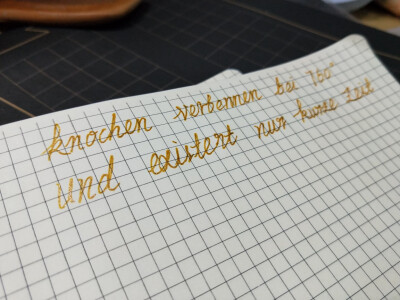 knochen verbennen bei 760°
und existert nur kurze Zeit